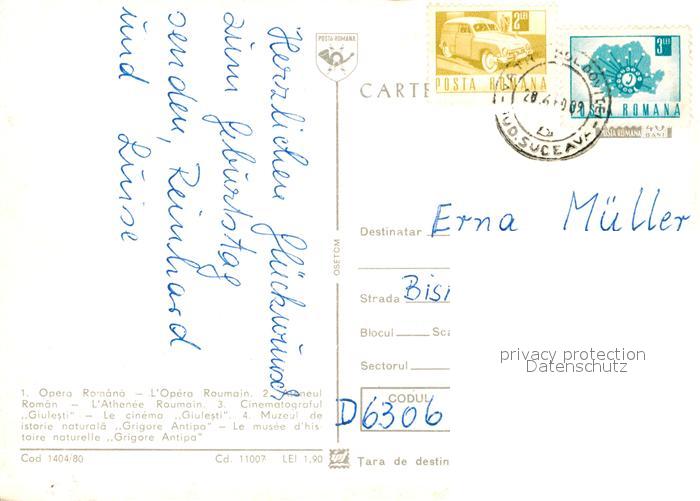 Herzlichen Glückwunsch
zum Geburtstag
senden, Reinhard
und Luise
1. Opera Română — L'Opéra Roumain. 2.
Român — L'Athenée Roumain. 3. Cinematograful
„Giulești" — Le cinéma „Giulești". 4. Muzeul de
istorie naturală „Grigore Antipa" — Le musée d'his
toire naturelle „Grigore Antipa"
Cod 1404/80 Cd. 11007 LEI 1,90
OSETCM
POSTA ROMANA
CARTE
2 LEI
POSTA ROMANA
3 LEI
POSTA ROMANA
POSTA ROMANA 40 BANI
JUD. SUCEAVA
Destinatar Erna Müller
Strada Bisi
Blocul Sca
Sectorul
privacy protection
Datenschutz
CODUL
D6306
Țara de destin